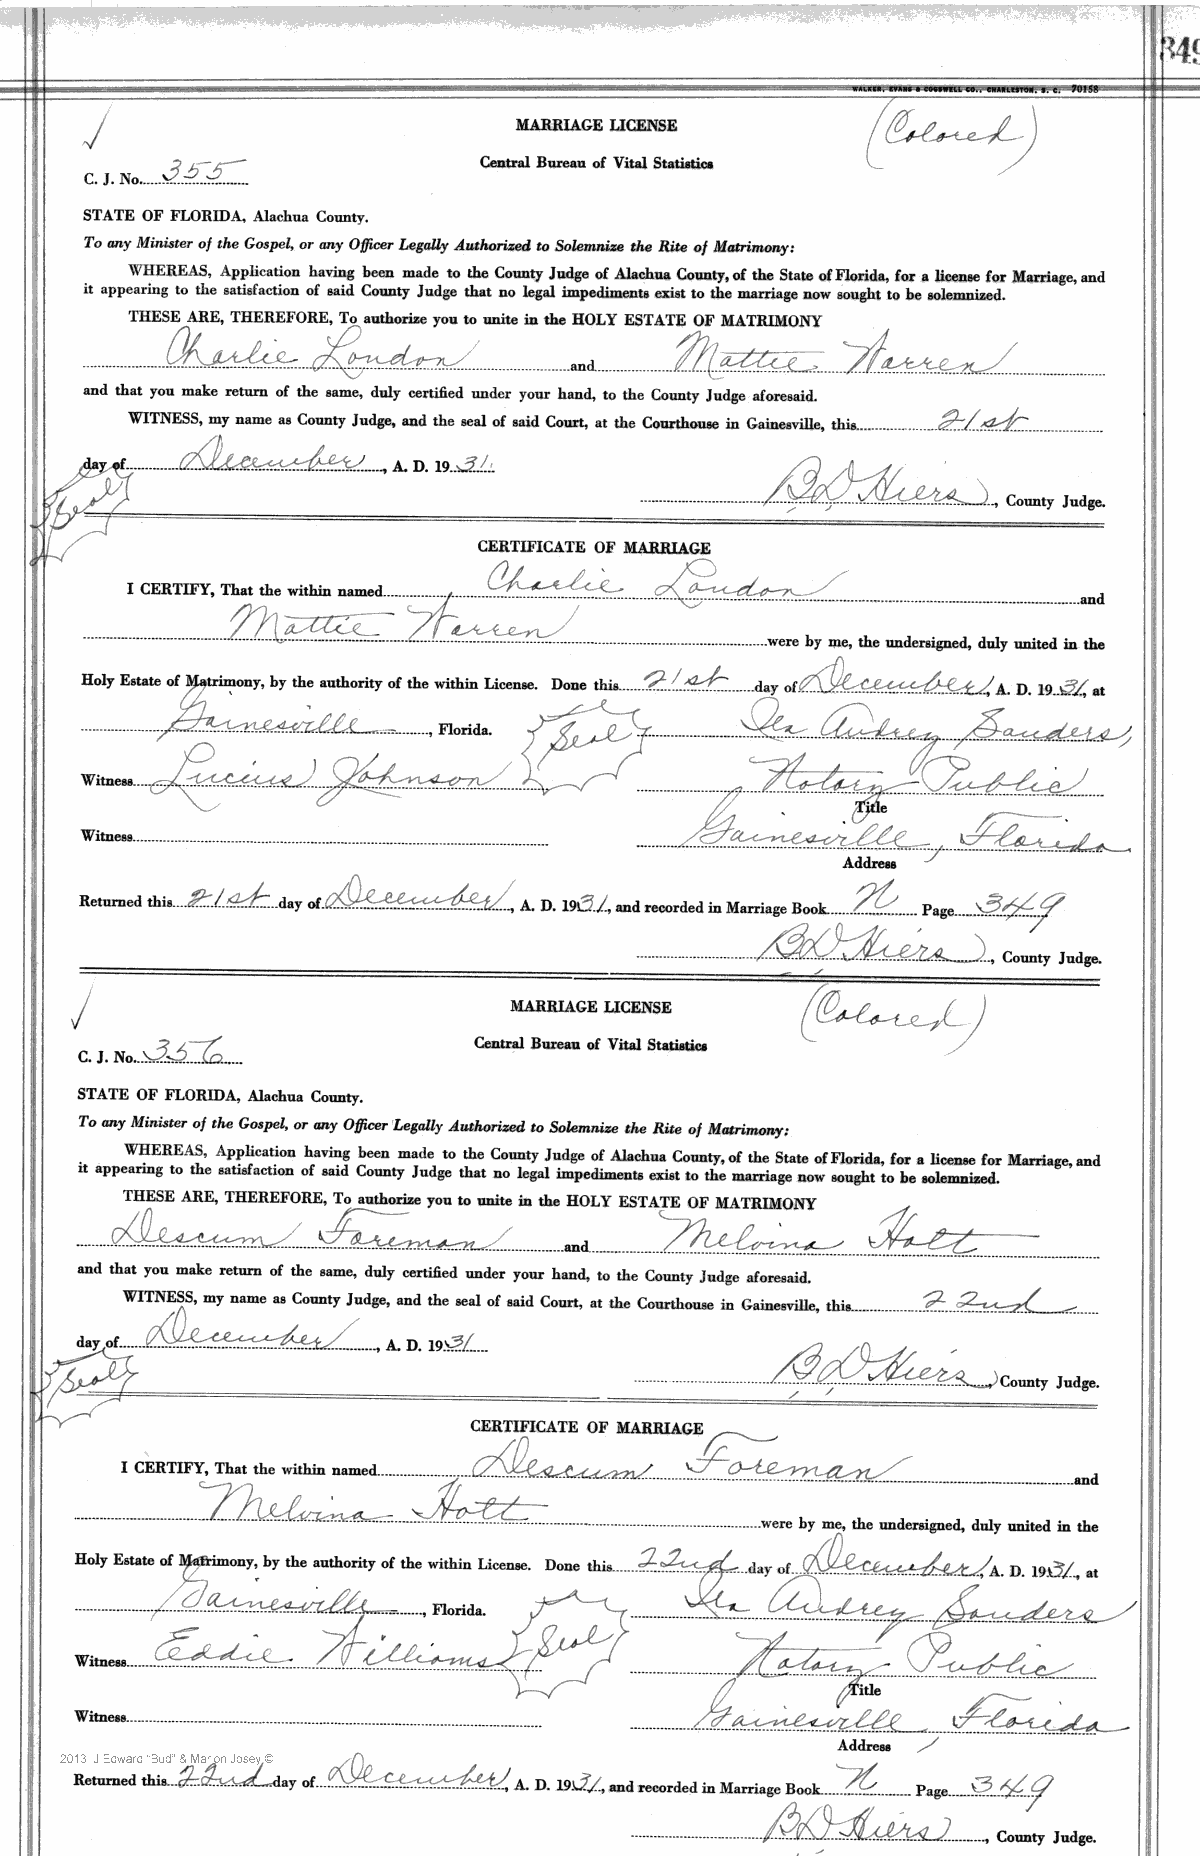 349
WALKER, EVANS & COGSWELL CO., CHARLESTON, S. C. 70158
MARRIAGE LICENSE (Colored)
Central Bureau of Vital Statistics
C. J. No. 355
STATE OF FLORIDA, Alachua County.
To any Minister of the Gospel, or any Officer Legally Authorized to Solemnize the Rite of Matrimony:
WHEREAS, Application having been made to the County Judge of Alachua County, of the State of Florida, for a license for Marriage, and
it appearing to the satisfaction of said County Judge that no legal impediments exist to the marriage now sought to be solemnized.
THESE ARE, THEREFORE, To authorize you to unite in the HOLY ESTATE OF MATRIMONY
Charlie London and Mattie Warren
and that you make return of the same, duly certified under your hand, to the County Judge aforesaid.
WITNESS, my name as County Judge, and the seal of said Court, at the Courthouse in Gainesville, this 21st
day of December, A. D. 1931.
Seal B D Hiers, County Judge.
CERTIFICATE OF MARRIAGE
I CERTIFY, That the within named Charlie London and
Mattie Warren were by me, the undersigned, duly united in the
Holy Estate of Matrimony, by the authority of the within License. Done this 21st day of December, A. D. 1931, at
Gainesville, Florida. Seal Audrey Sanders,
Witness Lucius Johnson Notary Public
Title
Witness Gainesville, Florida
Address
Returned this 21st day of December, A. D. 1931, and recorded in Marriage Book N Page 349
B D Hiers, County Judge.
MARRIAGE LICENSE (Colored)
Central Bureau of Vital Statistics
C. J. No. 356
STATE OF FLORIDA, Alachua County.
To any Minister of the Gospel, or any Officer Legally Authorized to Solemnize the Rite of Matrimony:
WHEREAS, Application having been made to the County Judge of Alachua County, of the State of Florida, for a license for Marriage, and
it appearing to the satisfaction of said County Judge that no legal impediments exist to the marriage now sought to be solemnized.
THESE ARE, THEREFORE, To authorize you to unite in the HOLY ESTATE OF MATRIMONY
Descum Foreman and Melvina Holt
and that you make return of the same, duly certified under your hand, to the County Judge aforesaid.
WITNESS, my name as County Judge, and the seal of said Court, at the Courthouse in Gainesville, this 22nd
day of December, A. D. 1931
Seal B D Hiers, County Judge.
CERTIFICATE OF MARRIAGE
I CERTIFY, That the within named Descum Foreman and
Melvina Holt were by me, the undersigned, duly united in the
Holy Estate of Matrimony, by the authority of the within License. Done this 22nd day of December, A. D. 1931, at
Gainesville, Florida. Seal Audrey Sanders
Witness Eddie Williams Notary Public
Title
Witness Gainesville, Florida
Address
2013 J Edward "Bud" & Marion Josey ©
Returned this 22nd day of December, A. D. 1931, and recorded in Marriage Book N Page 349
B D Hiers, County Judge.